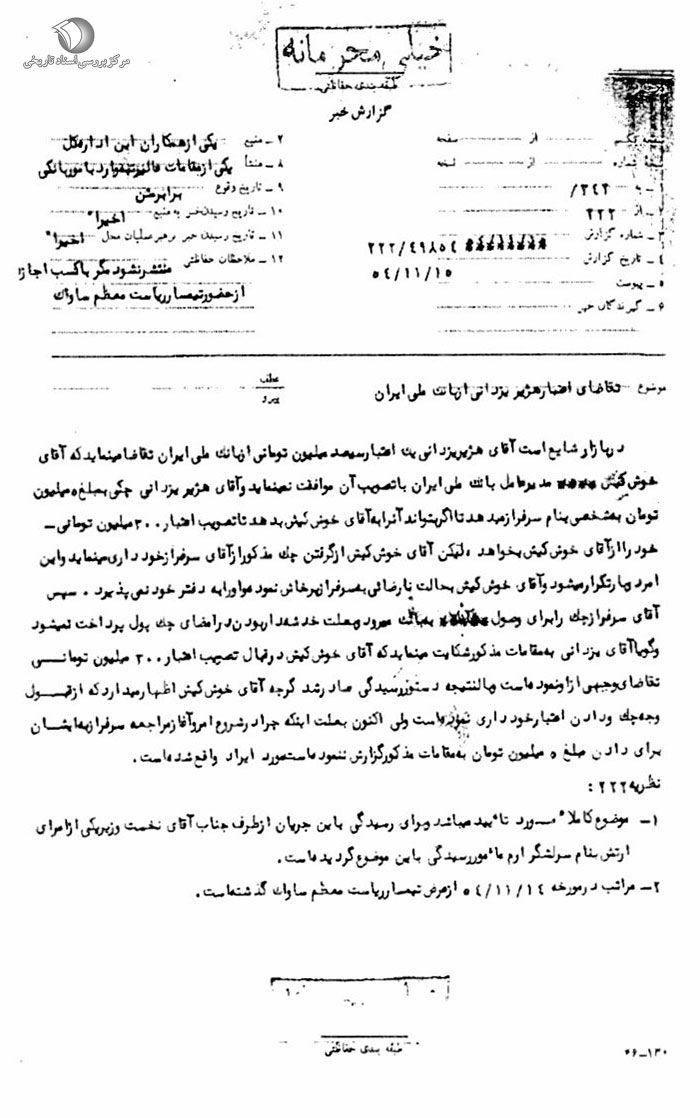 مرکز بررسی اسناد تاریخی
خیلی محرمانه
طبقه بندی حفاظتی
گزارش خبر
صفحه از صفحه
نسخه شماره از نسخه
۱ـ به ۳۴۲/
۲ـ از ۲۲۲
۳ـ شماره گزارش ۲۲۲/۴۹۸۵۴
۴ـ تاریخ گزارش ۵۴/۱۱/۱۵
۵ـ پیوست
۶ـ گیرندگان خبر
۷ـ منبع یکی از همکاران این اداره کل
۸ـ منشأ یکی از مقامات
۹ـ تاریخ وقوع
۱۰ـ تاریخ رسیدن خبر به منبع اخیرا"
۱۱ـ تاریخ رسیدن خبر برهبر عملیات محل اخیرا"
۱۲ـ ملاحظات حفاظتی منتشر نشود مگر با کسب اجازه
از حضور تیمسار ریاست معظم ساواک
موضوع تقاضای اعتبار هژبر یزدانی از بانک ملی ایران
عطف
پیرو
در بازار شایع است آقای هژبر یزدانی یک اعتبار سیصد میلیون تومانی از بانک ملی ایران تقاضا مینماید که آقای
خوش کیش مدیرعامل بانک ملی ایران با تصویب آن موافقت نمینماید و آقای هژبر یزدانی چکی بمبلغ ۵ میلیون
تومان بشخصی بنام سرفراز میدهد تا اگر بتواند آنرا به آقای خوش کیش بدهد تا تصویب اعتبار ۳۰۰ میلیون تومانی ـ
خود را از آقای خوش کیش بخواهد ، لیکن آقای خوش کیش از گرفتن چک مذکور از آقای سرفراز خود داری مینماید و این
امر دوبار تکرار میشود و آقای خوش کیش بحالت نارضائی به سرفراز پرخاش نموده و او را به دفتر خود نمی پذیرد . سپس
آقای سرفراز چک را برای وصول به بانک میبرد و بعلت خدشه دار بودن در امضای چک پول پرداخت نمیشود
و گویا آقای یزدانی به مقامات مذکور شکایت مینماید که آقای خوش کیش در قبال تصویب اعتبار ۳۰۰ میلیون تومانی
تقاضای وجهی از او نموده است و بالنتیجه دستور رسیدگی صادر شد گرچه آقای خوش کیش اظهار میدارد که از قبول
وجه چک و دادن اعتبار خود داری نموده است ولی اکنون بعلت اینکه چرا در شروع امر و آغاز مراجعه سرفراز به ایشان
برای دادن مبلغ ۵ میلیون تومان به مقامات مذکور گزارش ننموده است مورد ایراد واقع شده است .
نظریه ۲۲۲ :
۱ـ موضوع کاملا" مورد تائید میباشد و برای رسیدگی باین جریان از طرف جناب آقای نخست وزیر یکی از امرای
ارتش بنام سرلشگر ارم مأمور رسیدگی باین موضوع گردیده است .
۲ـ مراتب در مورخه ۵۴/۱۱/۱۴ از عرض تیمسار ریاست معظم ساواک گذشته است .
طبقه بندی حفاظتی
۱۳۰ـ۴۶